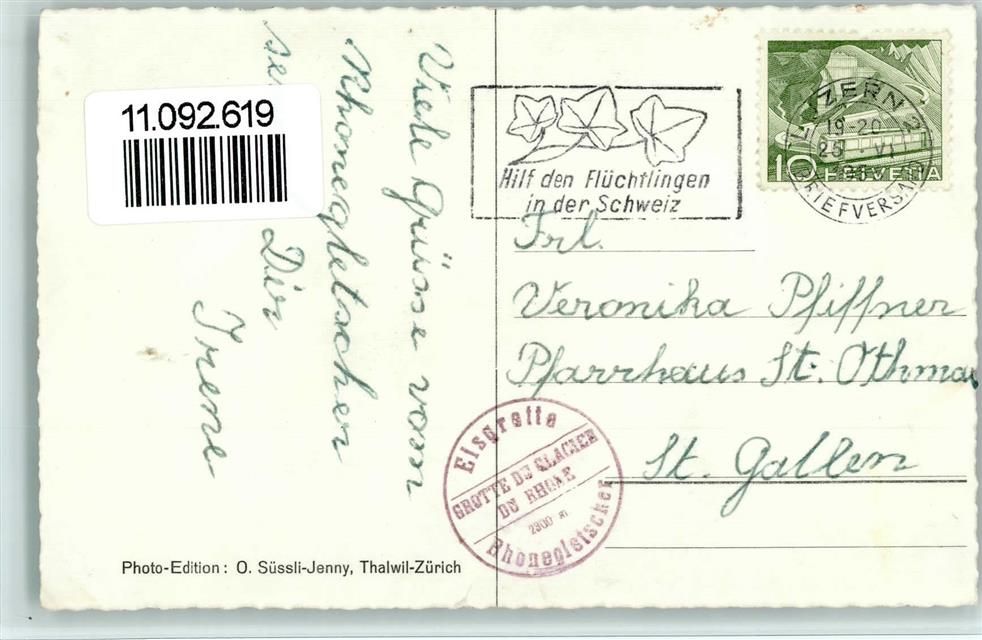 11.092.619
Viele Grüsse vom
Rhonegletscher
Dir
Irene
Hilf den Flüchtlingen
in der Schweiz
LUZERN 2
19-20
VI
BRIEFVERSAND
10 HELVETIA
Frl.
Veronika Pfiffner
Pfarrhaus St. Othmar
St. Gallen
Eisgrotte
GROTTE DU GLACIER
DU RHONE
2300 m
Rhonegletscher
Photo-Edition: O. Süssli-Jenny, Thalwil-Zürich